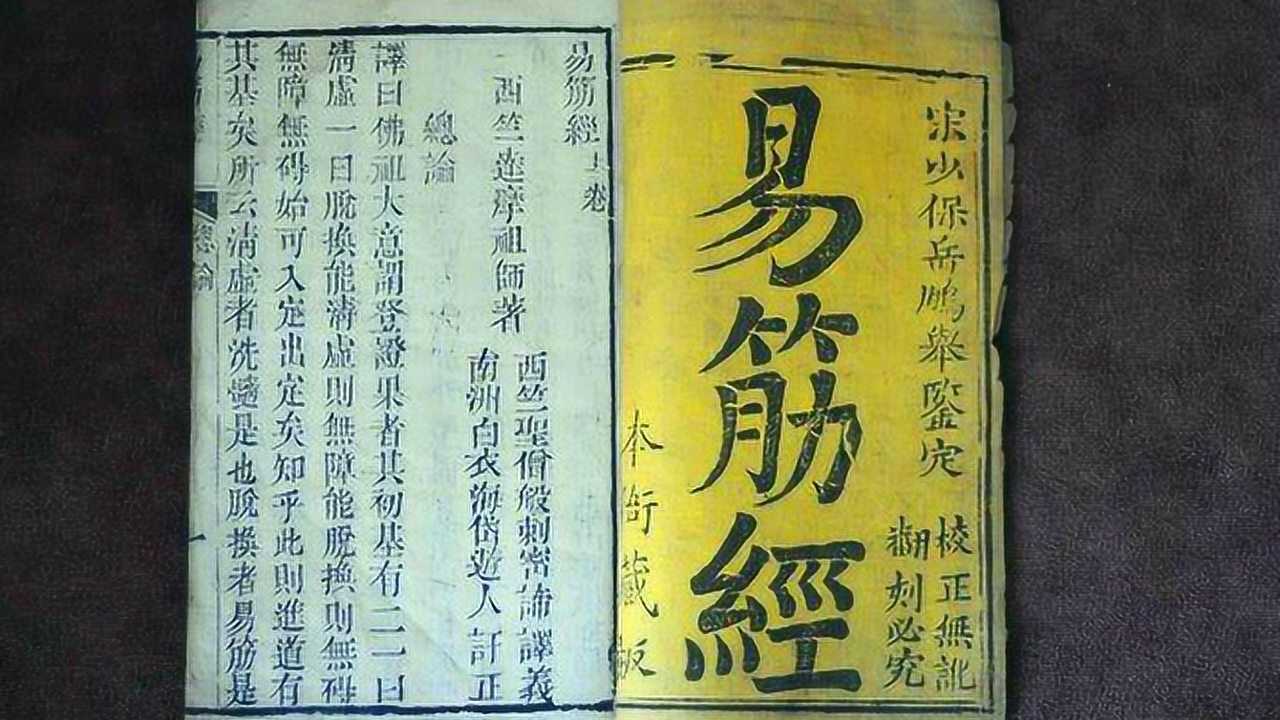 宋少保岳鵬舉鑒定
校正無訛
翻刻必究
易筋經
本衙藏板
易筋經上卷
西竺達摩祖師著
西竺聖僧般刺密諦譯義
南洲白衣海岱遊人訂正
總論
譯曰佛祖大意謂登證果者其初基有二一曰
清虛一曰脫換能清虛則無障能脫換則無礙
無障無礙始可入定出定矣知乎此則進道有
其基矣所云清虛者洗髓是也脫換者易筋是
總論